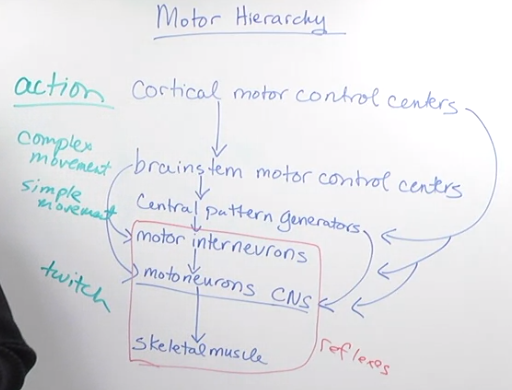 Motor Hierarchy
action
cortical motor control centers
complex
movement
brainstem motor control centers
simple
movement
Central pattern generators
motor interneurons
twitch
motoneurons CNS
skeletal muscle
reflexes